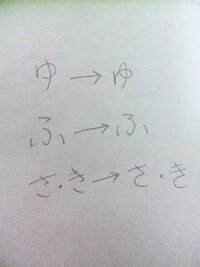 ゆ→ゆ
ふ→ふ
さ・き→さ・き